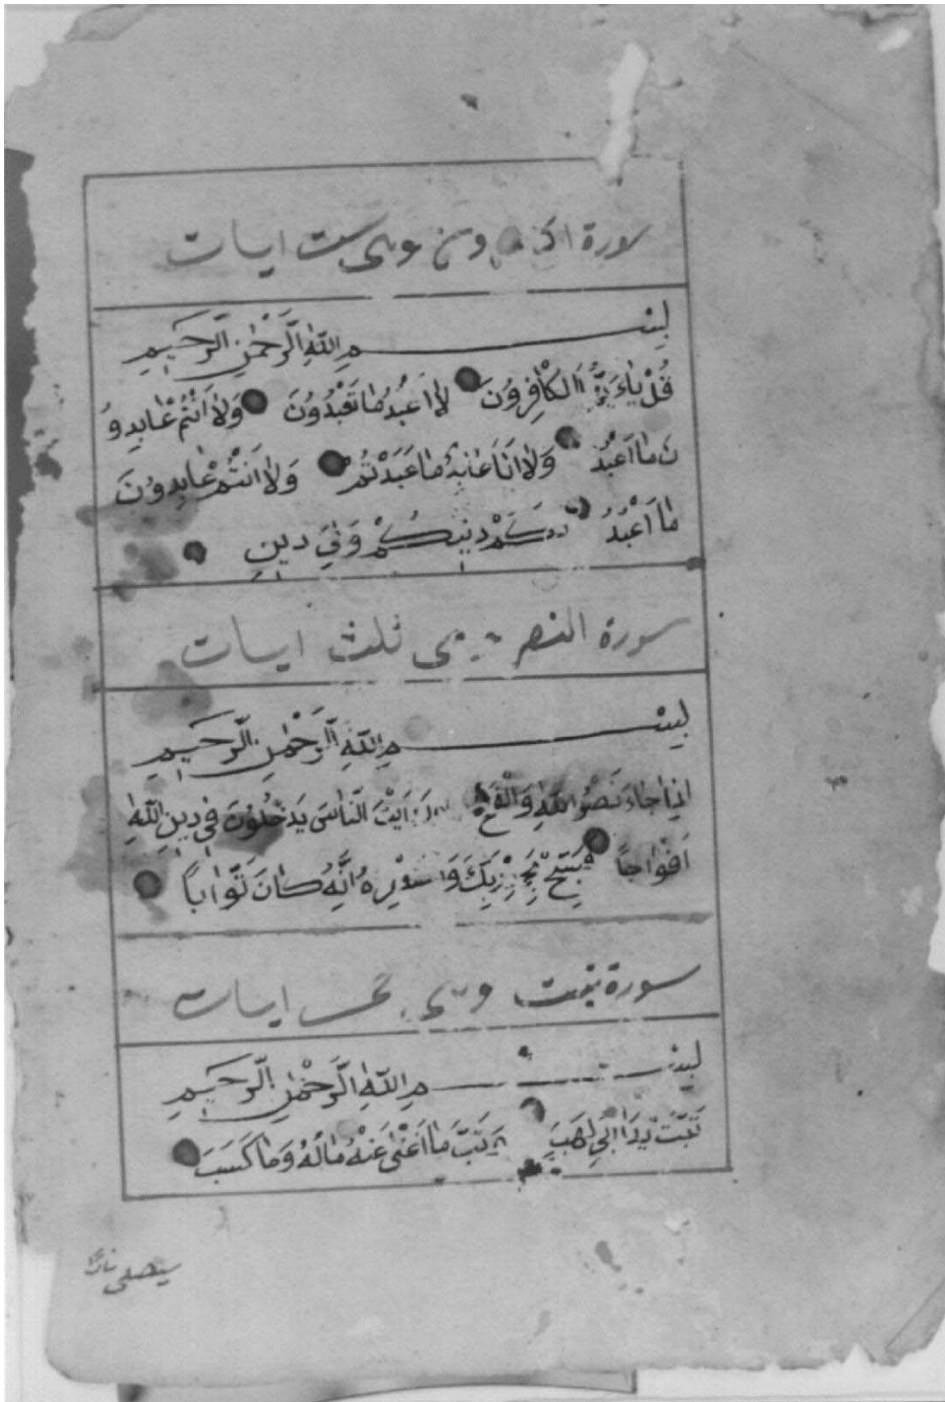 سورة الكافرون وهى ست ايات
بِسْمِ اللّٰهِ الرَّحْمٰنِ الرَّحِيمِ
قُلْ يٰاءَيُّهَا الْكٰافِرُونَ لٰا اَعْبُدُ مٰا تَعْبُدُونَ وَلٰا اَنْتُمْ عٰابِدُو
نَ مٰا اَعْبُدُ وَلٰا اَنَا عٰابِدٌ مٰا عَبَدْتُمْ وَلٰا اَنْتُمْ عٰابِدُونَ
مٰا اَعْبُدُ لَكُمْ دِينُكُمْ وَلِيَ دِينِ
سورة النصر وهى ثلث ايات
بِسْمِ اللّٰهِ الرَّحْمٰنِ الرَّحِيمِ
اِذٰا جٰاءَ نَصْرُ اللّٰهِ وَالْفَتْحُ وَرَاَيْتَ النّٰاسَ يَدْخُلُونَ فِي دِينِ اللّٰهِ
اَفْوٰاجاً فَسَبِّحْ بِحَمْدِ رَبِّكَ وَاسْتَغْفِرْهُ اِنَّهُ كٰانَ تَوّٰاباً
سورة تبت وهى خمس ايات
بِسْمِ اللّٰهِ الرَّحْمٰنِ الرَّحِيمِ
تَبَّتْ يَدٰا اَبِي لَهَبٍ وَتَبَّ مٰا اَغْنٰى عَنْهُ مٰالُهُ وَمٰا كَسَبَ
سيصلى نارًا